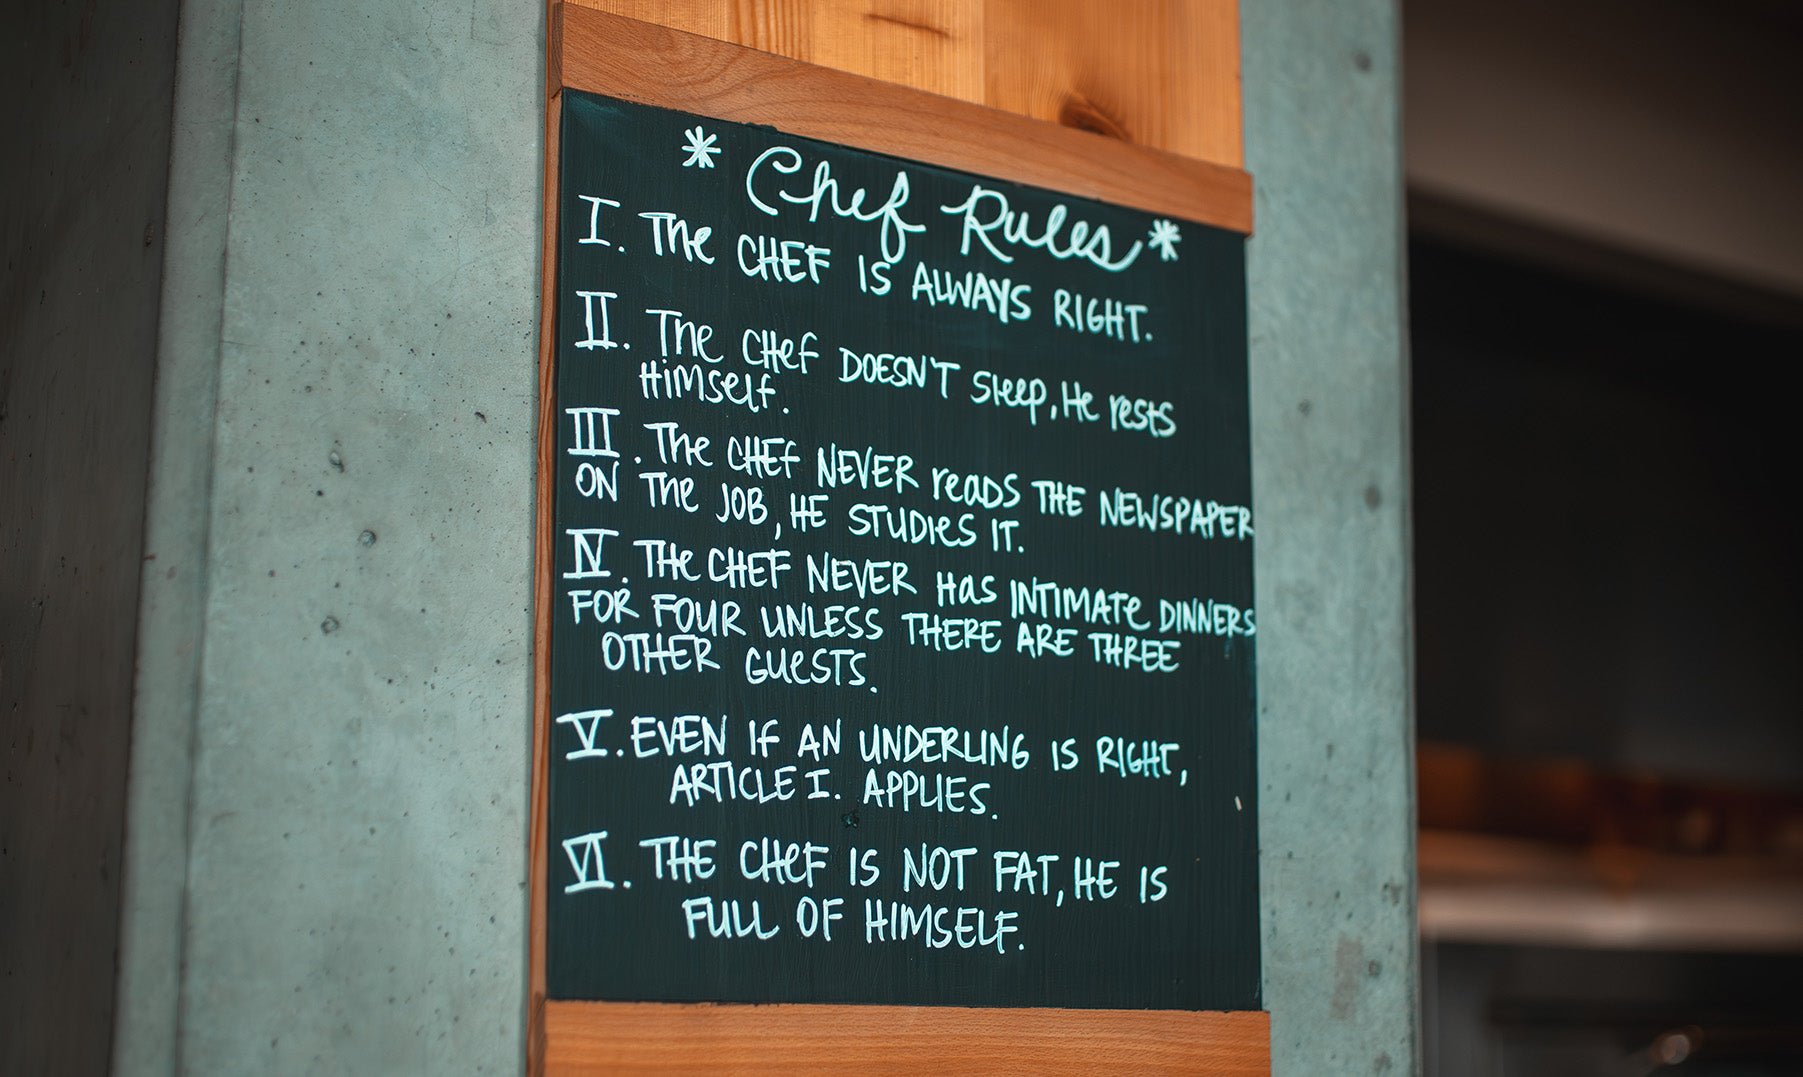 * Chef Rules *
I. THE CHEF IS ALWAYS RIGHT.
II. THE CHEF DOESN'T SLEEP, HE RESTS
HIMSELF.
III. THE CHEF NEVER READS THE NEWSPAPER
ON THE JOB, HE STUDIES IT.
IV. THE CHEF NEVER HAS INTIMATE DINNERS
FOR FOUR UNLESS THERE ARE THREE
OTHER GUESTS.
V. EVEN IF AN UNDERLING IS RIGHT,
ARTICLE I. APPLIES.
VI. THE CHEF IS NOT FAT, HE IS
FULL OF HIMSELF.